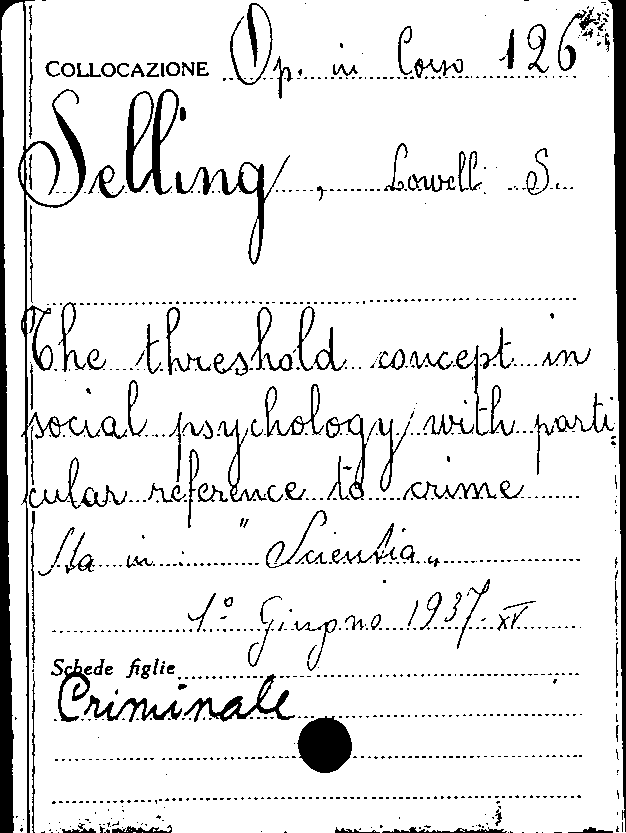 COLLOCAZIONE Op. in Corso 126
Selling, Lowell S.
The threshold concept in
social psychology with parti
cular reference to crime
Sta in: "Scientia„
1º Giugno 1937-XV
Schede figlie
Criminale